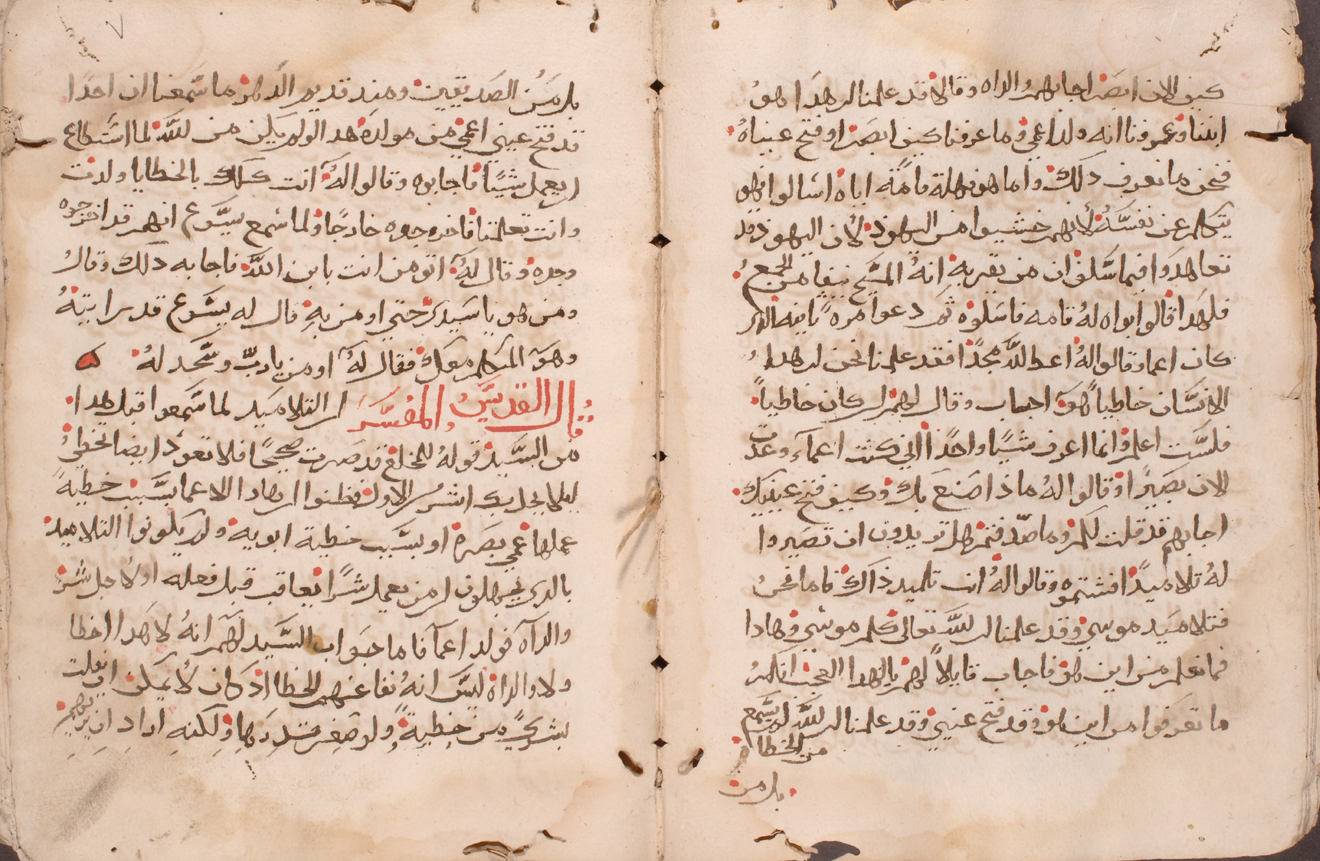 كيف الان ابصر اجابهم والداه وقالا قد علمنا ان هدا هو
ابننا وعرفنا انه ولد اعمي وما عرفنا كيف ابصر او فتح عيناه
فنحن ما نعرف دلك واما هو فهلة قامة اياه اسالوا فهو
يتكلم عن نفسه لانهم خشيوا من اليهود لان اليهود قد
تعاهدوا فيما سلف ان من يقر به انه المسيح ينفا من الجمع
فلهدا قالوا ابواه له قامه فاسلوه تم دعوا مره تانيه الدي
كان اعما وقالوا له اعط لله مجدًا فقد علمنا نحن ان هدا
الانسان خاطياً هو اجاب وقال لهم ان كان خاطياً
فلست اعلم وانما اعرف شيًا واحدًا اني كنت اعماء وعدت
الان بصيرًا وقالوا له ماذا صنع بك وكيف فتح عينيك
اجابهم قد قلت لكم وما صدقتم هل تريدون ان تصيروا
له تلاميدًا فشتموه وقالوا له انت تلميد داك فاما نحن
فتلاميد موسي وقد علمنا ان لله تعالى كلم موسي وهادا
فما نعلم من اين هو فاجاب قايلاً لهم بالهدا العجب انكم
ما تعرفوا من اين هو وقد فتح عيني وقد علمنا ان لله لم يسمع
من الخطا
بل من
بل من الصديقين ومند قديم الدهر ما سمعنا ان احدًا
قد فتح عيني اعمي من مولده هدا لو لم يكن من لله لما استطاع
ان يعمل شيًا فاجابوه وقالوا له انت كلك بالخطايا ولدت
وانت تعلمنا فاخرجوه خارجًا ولما سمع يسوع انهم قد اخرجوه
وجده وقال له اتومن انت بابن الله فاجابه دلك وقال
ومن هو يا سيد حتي اومن به قال له يسوع قد رايته
وهو المتكلم معك فقال له اومن يا رب وسجد له
قال القديس المفسر ان التلاميد لما سمعوا قبل هدا
من السيد قوله للمخلع قد صرت صحيحًا فلا تعود ايضا تخطي
ليلا يحل بك اشر من الاول فظنوا ان هادا الاعما بسبب خطية
عملها عمي بصره او بسبب خطية ابويه ولم يكونوا التلاميد
بالدي يجهلون ان من يعمل شرًا يعاقب قبل فعله او لاجل شر
والداه فولد اعما فاما جواب السيد لهم انه لا هدا اخطا
ولا والداه ليس انه نفا عنهم الخطا اذ كان لا يمكن ان يفلت
بشري من خطية ولو صغر قدرها ولكنه اراد ان يريهم